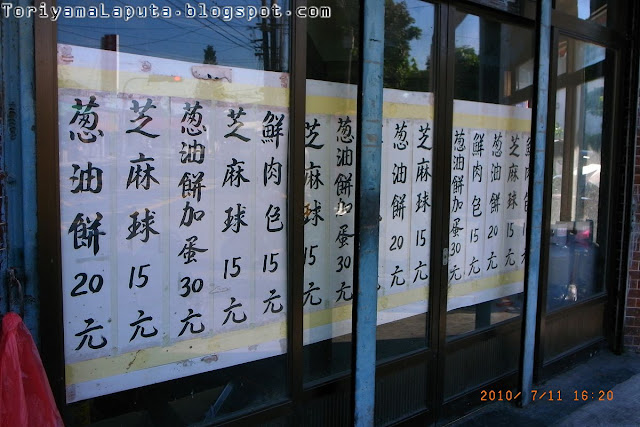 ToriyamaLaputa.blogspot.com
葱油餅20元
芝麻球15元
葱油餅加蛋30元
芝麻球15元
鮮肉包15元
芝麻球15元
葱油餅加蛋30元
葱油餅20元
芝麻球15元
葱油餅加蛋30元
鮮肉包15元
葱油餅20元
芝麻球15元
2010/ 7/11 16:20